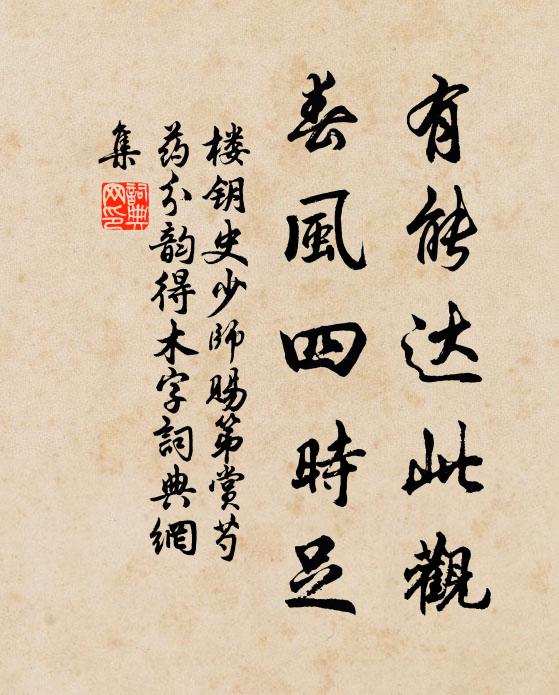 有能达此觀
春風四時足
楼钥史少師賜第賞芍
药分韵得木字詞典網
集
詞典
网印